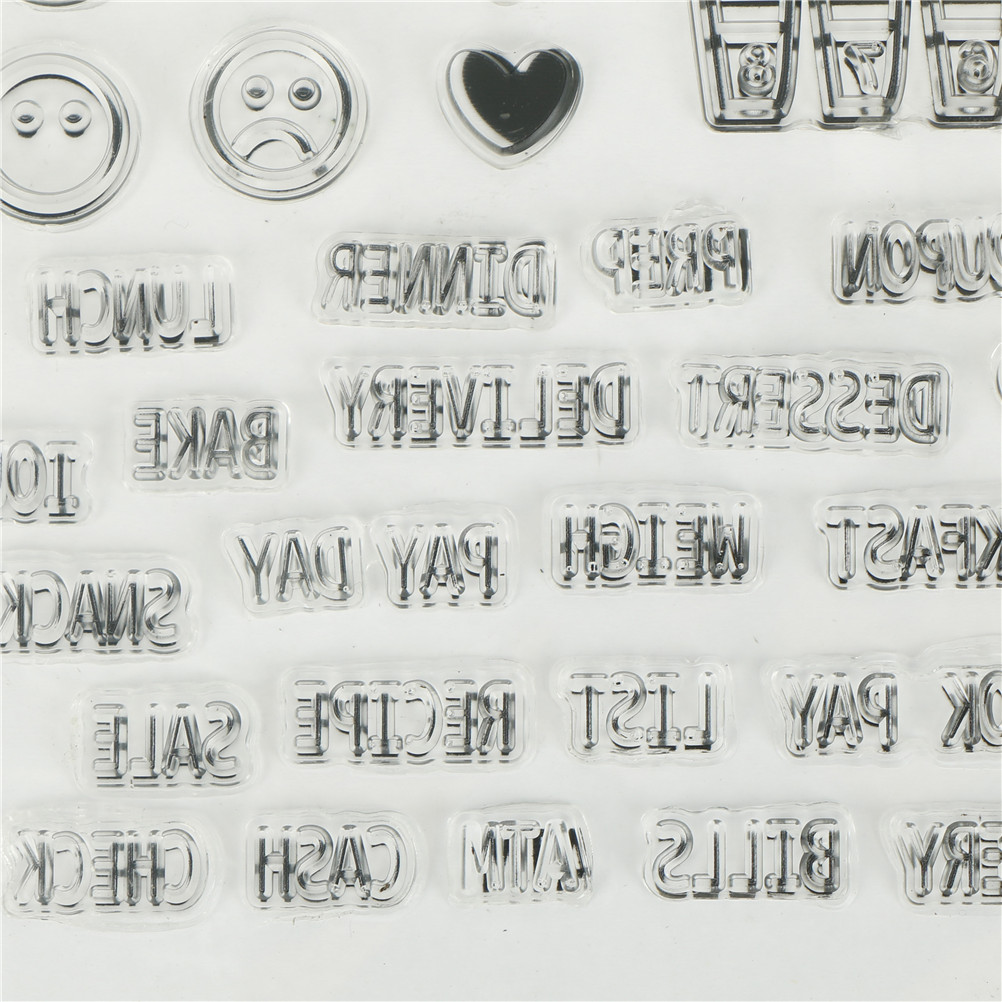 8 7 6
LUNCH DINNER PREP OUPON
BAKE DELIVERY DESSERT
SNACK PAY DAY WEIGH KFAST
SALE RECIPE LIST PAY OK
CHECK CASH ATM BILLS ERY